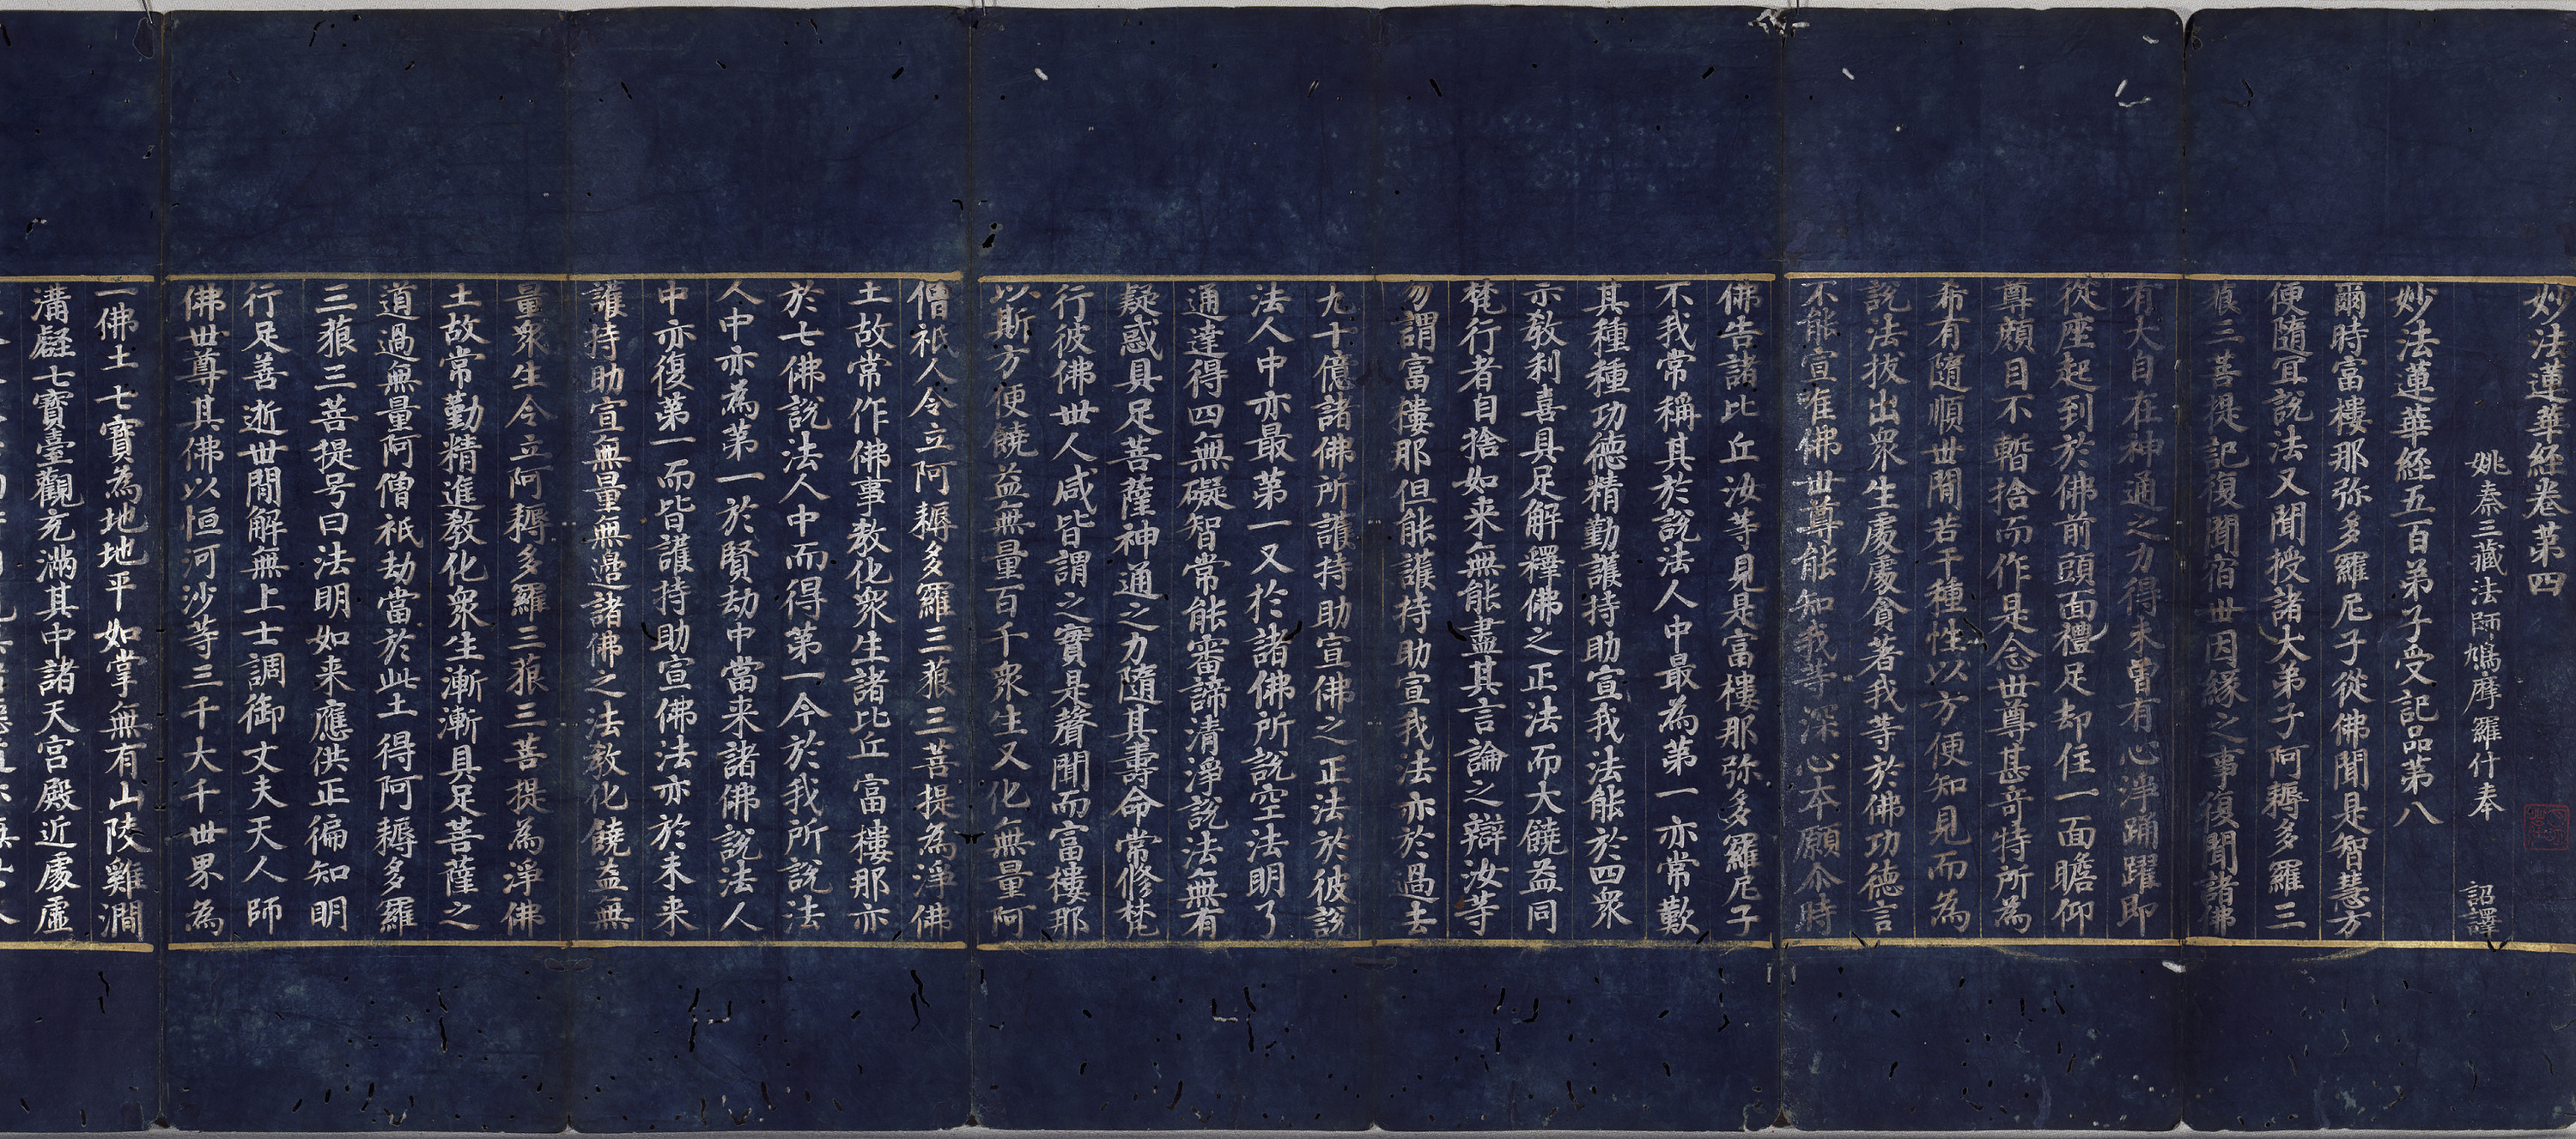 妙法蓮華經卷第四
姚秦三藏法師鳩摩羅什奉 詔譯
妙法蓮華經五百弟子受記品第八
爾時富樓那弥多羅尼子從佛聞是智慧方
便隨宜說法又聞授諸大弟子阿耨多羅三
藐三菩提記復聞宿世因緣之事復聞諸佛
有大自在神通之力得未曾有心淨踊躍即
從座起到於佛前頭面禮足却住一面瞻仰
尊顏目不暫捨而作是念世尊甚奇特所為
希有隨順世間若干種性以方便知見而為
說法拔出衆生處處貪著我等於佛功德言
不能宣唯佛世尊能知我等深心本願尒時
佛告諸比丘汝等見是富樓那弥多羅尼子
不我常稱其於說法人中最為第一亦常歎
其種種功德精勤護持助宣我法能於四衆
示教利喜具足解釋佛之正法而大饒益同
梵行者自捨如来無能盡其言論之辯汝等
勿謂富樓那但能護持助宣我法亦於過去
九十億諸佛所護持助宣佛之正法於彼說
法人中亦最第一又於諸佛所說空法明了
通達得四無礙智常能審諦清淨說法無有
疑惑具足菩薩神通之力隨其壽命常修梵
行彼佛世人咸皆謂之實是聲聞而富樓那
以斯方便饒益無量百千衆生又化無量阿
僧祇人令立阿耨多羅三藐三菩提為淨佛
土故常作佛事教化衆生諸比丘富樓那亦
於七佛說法人中而得第一今於我所說法
人中亦為第一於賢劫中當来諸佛說法人
中亦復第一而皆護持助宣佛法亦於未来
護持助宣無量無邊諸佛之法教化饒益無
量衆生令立阿耨多羅三藐三菩提為淨佛
土故常勤精進教化衆生漸漸具足菩薩之
道過無量阿僧祇劫當於此土得阿耨多羅
三藐三菩提号曰法明如来應供正徧知明
行足善逝世間解無上士調御丈夫天人師
佛世尊其佛以恒河沙等三千大千世界為
一佛土七寶為地地平如掌無有山陵谿澗
溝壑七寶臺觀充滿其中諸天宮殿近處虛